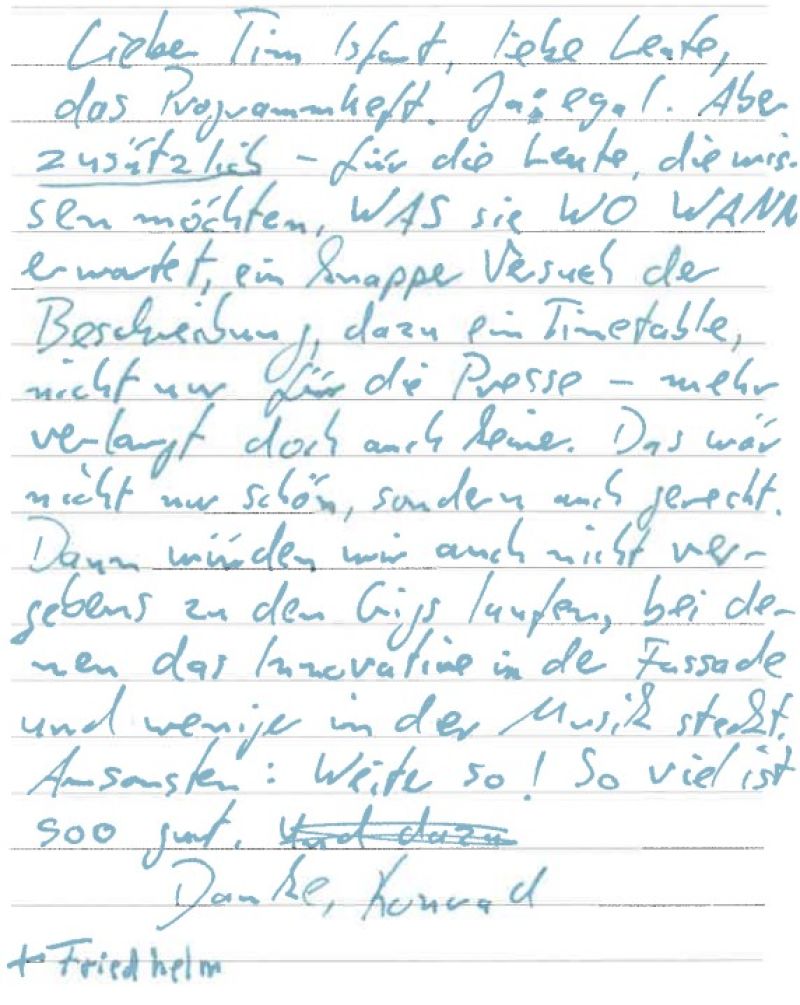 Lieber Tim Isfort, liebe Leute,
das Programmheft. Ja: egal. Aber
zusätzlich – für die Leute, die wis-
sen möchten, WAS sie WO WANN
erwartet, ein knapper Versuch der
Beschreibung, dazu ein Timetable,
nicht nur für die Presse – mehr
verlangt doch auch keiner. Das wär
nicht nur schön, sondern auch gerecht.
Dann würden wir auch nicht ver-
gebens zu den Gigs laufen, bei de-
nen das Innovative in der Fassade
und weniger in der Musik steckt.
Ansonsten: Weiter so! So viel ist
soo gut. Und dazu
Danke, Konrad
+ Friedhelm